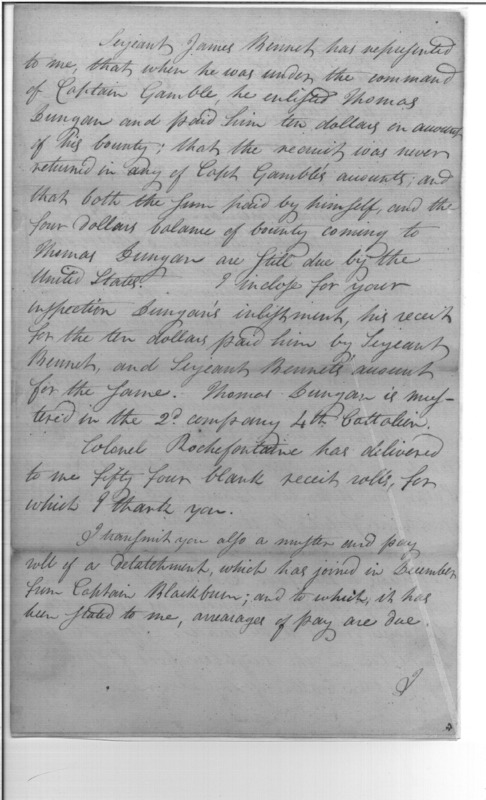 Serjeant James Bennet has represented
to me, that when he was under the command
of Captain Gamble, he enlisted Thomas
Dungan and paid him ten dollars on account
of his bounty; that the recruit was never
returned in any of Capt Gambles accounts; and
that both the sum paid by himself, and the
four dollars balance of bounty coming to
Thomas Dungan are still due by the
United States I inclose for your
inspection Dungan's inlistment, his receit
for the ten dollars paid him by Serjeant
Bennet, and Serjeant Bennets' account
for the same. Thomas Dungan is mus-
tered in the 2d company 4th Battalion.
Colonel Rochefontaine has delivered
to me fifty four blank receit rolls, for
which I thank you.
I transmit you also a muster and pay
roll of a detatchment, which has joined in December
from Captain Blackburn; and to which, it has
been stated to me, arrearages of pay are due.
I